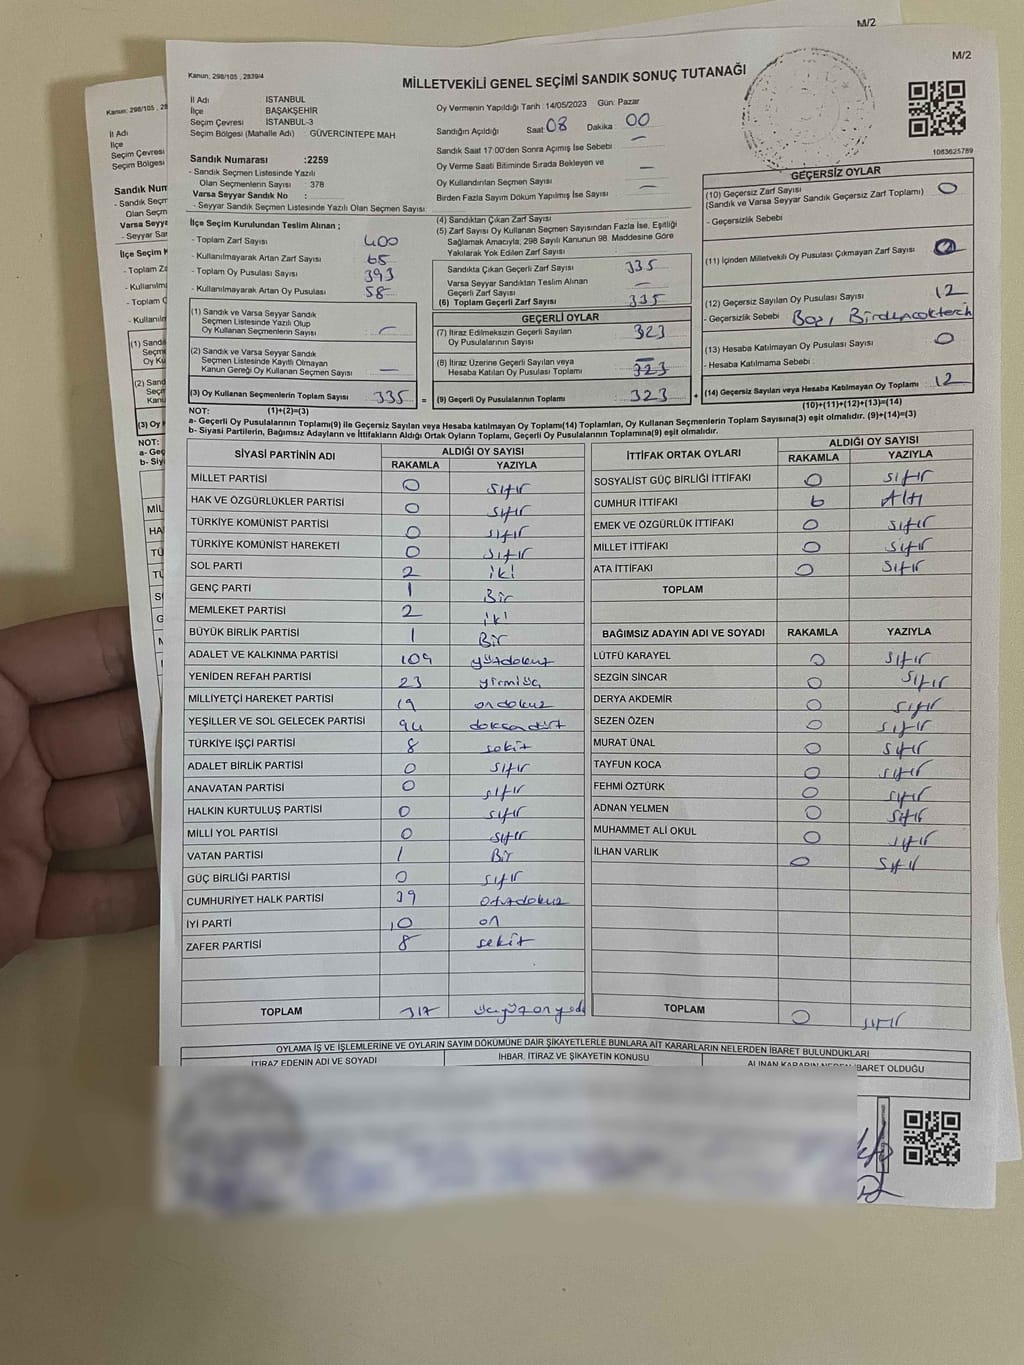 M/2
M/2
Kanun; 298/105 , 2839/4
MİLLETVEKİLİ GENEL SEÇİMİ SANDIK SONUÇ TUTANAĞI
İl Adı İSTANBUL
İlçe BAŞAKŞEHİR
Seçim Çevresi İSTANBUL-3
Seçim Bölgesi (Mahalle Adı) : GÜVERCİNTEPE MAH
Sandık Numarası :2259
- Sandık Seçmen Listesinde Yazılı
Olan Seçmenlerin Sayısı : 378
Varsa Seyyar Sandık No :
- Seyyar Sandık Seçmen Listesinde Yazılı Olan Seçmen Sayısı:
Oy Vermenin Yapıldığı Tarih : 14/05/2023 Gün: Pazar
Sandığın Açıldığı Saat 08 Dakika 00
Sandık Saat 17:00'den Sonra Açımış İse Sebebi —
Oy Verme Saati Bitiminde Sırada Bekleyen ve
Oy Kullandırılan Seçmen Sayısı —
Birden Fazla Sayım Döküm Yapılmış İse Sayısı —
1083625789
İlçe Seçim Kurulundan Teslim Alınan ;
- Toplam Zarf Sayısı 400
- Kullanılmayarak Artan Zarf Sayısı 65
- Toplam Oy Pusulası Sayısı 393
- Kullanılmayarak Artan Oy Pusulası 58
(1) Sandık ve Varsa Seyyar Sandık
Seçmen Listesinde Yazılı Olup
Oy Kullanan Seçmenlerin Sayısı —
(2) Sandık ve Varsa Seyyar Sandık
Seçmen Listesinde Kayıtlı Olmayan
Kanun Gereği Oy Kullanan Seçmen Sayısı —
(3) Oy Kullanan Seçmenlerin Toplam Sayısı 335 =
(4) Sandıktan Çıkan Zarf Sayısı
(5) Zarf Sayısı Oy Kullanan Seçmen Sayısından Fazla İse, Eşitliği
Sağlamak Amacıyla; 298 Sayılı Kanunun 98. Maddesine Göre
Yakılarak Yok Edilen Zarf Sayısı
Sandıkta Çıkan Geçerli Zarf Sayısı 335
Varsa Seyyar Sandıktan Teslim Alınan
Geçerli Zarf Sayısı —
(6) Toplam Geçerli Zarf Sayısı 335
GEÇERLİ OYLAR
(7) İtiraz Edilmeksizin Geçerli Sayılan
Oy Pusulalarının Sayısı 323
(8) İtiraz Üzerine Geçerli Sayılan veya
Hesaba Katılan Oy Pusulası Toplamı
(9) Geçerli Oy Pusulalarının Toplamı 323 +
GEÇERSİZ OYLAR
(10) Geçersiz Zarf Sayısı 0
(Sandık ve Varsa Seyyar Sandık Geçersiz Zarf Toplamı)
- Geçersizlik Sebebi
(11) İçinden Milletvekili Oy Pusulası Çıkmayan Zarf Sayısı
(12) Geçersiz Sayılan Oy Pusulası Sayısı 12
- Geçersizlik Sebebi Boş, Birdençoktercih
(13) Hesaba Katılmayan Oy Pusulası Sayısı 0
- Hesaba Katılmama Sebebi :
(14) Geçersiz Sayılan veya Hesaba Katılmayan Oy Toplamı 12
NOT: (1)+(2)=(3) (10)+(11)+(12)+(13)=(14)
a- Geçerli Oy Pusulalarının Toplamı(9) ile Geçersiz Sayılan veya Hesaba Katılmayan Oy Toplamı(14) Toplamları, Oy Kullanan Seçmenlerin Toplam Sayısına(3) eşit olmalıdır. (9)+(14)=(3)
b- Siyasi Partilerin, Bağımsız Adayların ve İttifakların Aldığı Ortak Oyların Toplamı, Geçerli Oy Pusulalarının Toplamına(9) eşit olmalıdır.
SİYASİ PARTİNİN ADI ALDIĞI OY SAYISI
RAKAMLA YAZIYLA
MİLLET PARTİSİ 0 sıfır
HAK VE ÖZGÜRLÜKLER PARTİSİ 0 sıfır
TÜRKİYE KOMÜNİST PARTİSİ 0 sıfır
TÜRKİYE KOMÜNİST HAREKETİ 0 sıfır
SOL PARTİ 2 iki
GENÇ PARTİ 1 Bir
MEMLEKET PARTİSİ 2 iki
BÜYÜK BİRLİK PARTİSİ 1 Bir
ADALET VE KALKINMA PARTİSİ 109 yüzdokuz
YENİDEN REFAH PARTİSİ 23 yirmiüç
MİLLİYETÇİ HAREKET PARTİSİ 19 ondokuz
YEŞİLLER VE SOL GELECEK PARTİSİ 94 doksandört
TÜRKİYE İŞÇİ PARTİSİ 8 sekiz
ADALET BİRLİK PARTİSİ 0 sıfır
ANAVATAN PARTİSİ 0 sıfır
HALKIN KURTULUŞ PARTİSİ 0 sıfır
MİLLİ YOL PARTİSİ 0 sıfır
VATAN PARTİSİ 1 Bir
GÜÇ BİRLİĞİ PARTİSİ 0 sıfır
CUMHURİYET HALK PARTİSİ 39 otuzdokuz
İYİ PARTİ 10 on
ZAFER PARTİSİ 8 sekiz
TOPLAM 317 üçyüzonyedi
İTTİFAK ORTAK OYLARI ALDIĞI OY SAYISI
RAKAMLA YAZIYLA
SOSYALİST GÜÇ BİRLİĞİ İTTİFAKI 0 sıfır
CUMHUR İTTİFAKI 6 Altı
EMEK VE ÖZGÜRLÜK İTTİFAKI 0 sıfır
MİLLET İTTİFAKI 0 sıfır
ATA İTTİFAKI 0 sıfır
TOPLAM
BAĞIMSIZ ADAYIN ADI VE SOYADI RAKAMLA YAZIYLA
LÜTFÜ KARAYEL 0 sıfır
SEZGİN SİNCAR 0 sıfır
DERYA AKDEMİR 0 sıfır
SEZEN ÖZEN 0 sıfır
MURAT ÜNAL 0 sıfır
TAYFUN KOCA 0 sıfır
FEHMİ ÖZTÜRK 0 sıfır
ADNAN YELMEN 0 sıfır
MUHAMMET ALİ OKUL 0 sıfır
İLHAN VARLIK 0 sıfır
TOPLAM 0 sıfır
OYLAMA İŞ VE İŞLEMLERİNE VE OYLARIN SAYIM DÖKÜMÜNE DAİR ŞİKAYETLERLE BUNLARA AİT KARARLARIN NELERDEN İBARET BULUNDUKLARI
İTİRAZ EDENİN ADI VE SOYADI İHBAR, İTİRAZ VE ŞİKAYETİN KONUSU ALINAN KARARIN NEDEN İBARET OLDUĞU